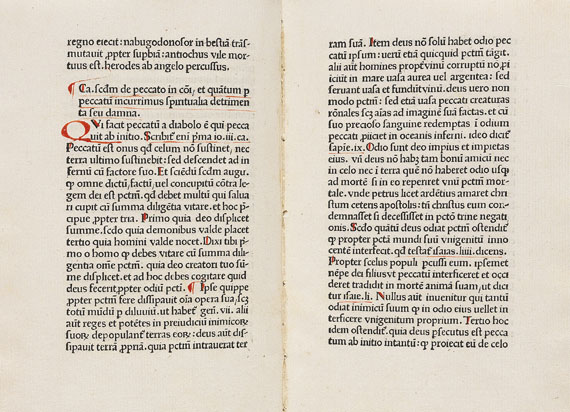 regno eiecit: nabugodonosor in bestiā trāſ-
mutauit ꝓpter ſupbiā: antiochus vile mor
tuus eſt. herodes ab angelo percuſſus.
¶ Ca. ſcđm de peccato in cōi, et quātum p
peccatū incurrimus ſpiritualia detrimen
ta ſeu damna.
QVi facit peccatū a diabolo ē qui pecca
uit ab initio. Scribit᷑ eni p̄ma io. iii. ca.
Peccatū eſt onus qđ celum non ſuſtinet, nec
terra ultimo ſuſtinebit: ſed deſcendet ad in
fernū cū factore ſuo. Et ſciēdū ſcđm augu.
ꝙ omne dictū, factū, uel concupitū cōtra le
gem dei eſt pctm̄. qđ debet multū qui ſalua
ri cupit cū ſumma diligētia vitare. et hoc p̄
cipue, ꝓpter tria. Primo quia deo diſplicet
ſumme. ſcđo quia demonibus valde placet
tertio quia homini valde nocet. Dixi tibi p̄
mo o homo ꝙ debes vitare cū ſumma dili
gentia omē pctm̄. quia deo creatori tuo ſū
me diſplicet. et ad hoc debes cogitare quid
deus fecerit, ꝓpter odiū pcti. ¶ Ipſe quippe
ꝓpter pctm̄ fere diſſipauit oīa opera ſua, ſcꝫ
totū mūdū p diluuiū. ut habet᷑ gen̄. vii. alii
aūt reges et potētes in preiudiciū inimicoꝝ
ſuoꝝ depopulant᷑ terras eoꝝ: deus aūt diſ-
ſipauit terrā, ꝓpriā. quia pctm̄ intrauerat ter
ram ſuā. Item deus nō ſolū habet odio pec
catū ipſum: uerum quicquid pctm̄ tāgit.
alii aūt homines propt̄ vinū corruptū nō p̄
iiciūt in mare uaſa aurea uel argentea: ſed
ſeruant uaſa et fundūt vinū. deus uero non
modo pctm̄: ſed etiā uaſa peccati creaturas
rōnales ſcꝫ aſas ad imaginē ſuā factas. et cū
ſuo precioſo ſanguine redemptas ī odium
peccati, p̄iiciet in oceanis inferni. ideo dicit᷑
ſapie. ix. Odio ſunt deo impius et impietas
eius. vn̄ deus nō habꝫ tam bonū amicū nec
in celo nec ī terra quē nō haberet odio uſqꝫ
ad mortē ſi in eo reperiret vnū pctm̄ mor-
tale. vnde petrus licet ardētius amaret chri
ſtum ceteris apoſtolis: tn̄ chriſtus eum con-
demnaſſet ſi deceſſiſſet in pctō trine negati
onis. Scđo quātū deus odiat pctm̄ oſtendit᷑
ꝙ propter pctā mundi ſuū vnigenitū inno
centē interfecit. qđ teſtat᷑ iſaias. liii. dicens.
Propter ſcelus populi pcuſſi eum. ipſemet
nēpe dei filius vt peccatū interficeret et occi
deret tradidit in mortē animā ſuam, ut dici
tur iſaie. li. Nullus aūt inuenitur qui tantū
odiat inimicū ſuum ꝙ in odio eius uellet in
terficere vnigenitum proprium. Tertio hoc
idem oſtendit᷑. quia deus p̄ſecutus eſt pecca
tum ab initio intantū: ꝙ proiecit eū de celo